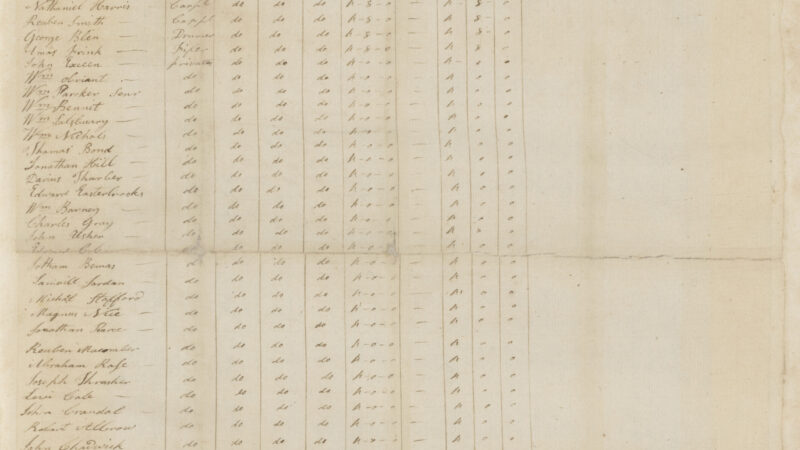 Nathaniel Harris Corpl do do do 4-8-0 — 4 8 0
Reuben Smith — Corpl do do do 4-8-0 — 4 8 0
George Blen — Drumer do do do 4-8-0 — 4 8 0
Amas Frink — Fifer do do do 4-8-0 — 4 8 0
John — private do do do 4-0-0 — 4 0 0
Wm — do do do do 4-0-0 — 4 0 0
Wm Parker Senr do do do do 4-0-0 — 4 0 0
Wm Bennit — do do do do 4-0-0 — 4 0 0
Wm Salsberry — do do do do 4-0-0 — 4 0 0
Wm Nichols — do do do do 4-0-0 — 4 0 0
Thomas Bond do do do do 4-0-0 — 4 0 0
Jonathan Hill — do do do do 4-0-0 — 4 0 0
Darius Thurber — do do do do 4-0-0 — 4 0 0
Edward Easterbrooks do do do do 4-0-0 — 4 0 0
Wm Barney — do do do do 4-0-0 — 4 0 0
Charles Gray — do do do do 4-0-0 — 4 0 0
John Usher — do do do do 4-0-0 — 4 0
do do do do 4-0-0 — 4 0 0
Jotham Bemas — do do do do 4-0-0 — 4 0 0
Samuill Jordan do do do do 4-0-0 — 4 0 0
Michil Stafford do do do do 4-0-0 — 4 0 0
Magnus — do do do do 4-0-0 — 4 0 0
Jonathan Pearce — do do do do 4-0-0 — 4 0 0
Reuben Macomber do do do do 4-0-0 — 4 0 0
Abraham Rose do do do do 4-0-0 — 4 0 0
Joseph Thrasher do do do do 4-0-0 — 4 0 0
Levi Cole — do do do do 4-0-0 — 4 0 0
John Crandal — do do do do 4-0-0 — 4 0 0
Robert — do do do do 4-0-0 — 4 0 0
John Chadwick do do do do 4-0-0 — 4 0 0